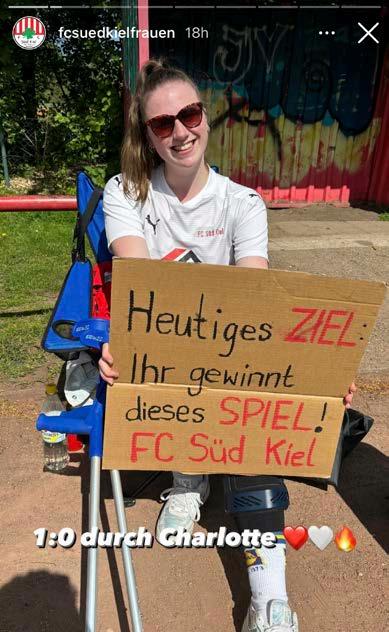 fcsuedkielfrauen 18h
FC Süd Kiel
Heutiges ZIEL:
Ihr gewinnt
dieses SPIEL!
FC Süd Kiel
1:0 durch Charlotte ❤️🤍🔥